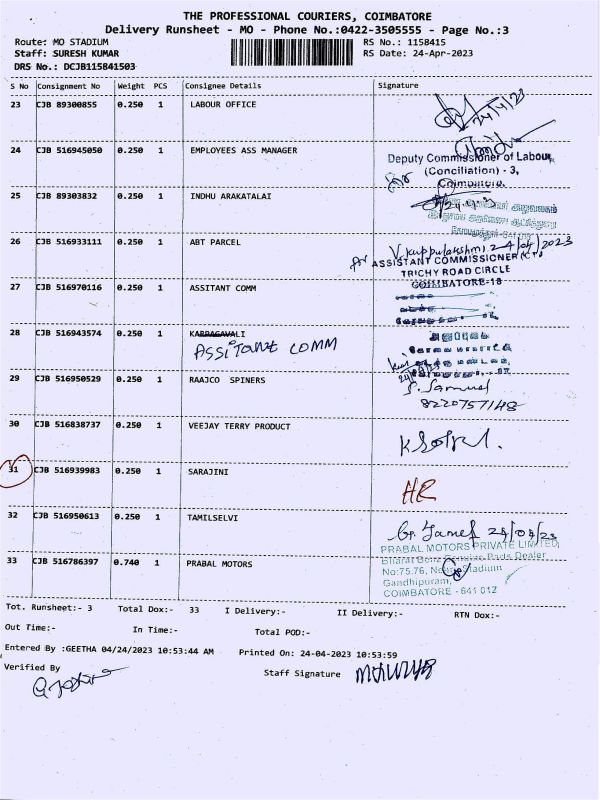 THE PROFESSIONAL COURIERS, COIMBATORE
Delivery Runsheet - MO - Phone No.:0422-3505555 - Page No.:3
Route: MO STADIUM RS No.: 1158415
Staff: SURESH KUMAR RS Date: 24-Apr-2023
DRS No.: DCJB115841503
S No Consignment No Weight PCS Consignee Details Signature
23 CJB 89300855 0.250 1 LABOUR OFFICE 24/4/23
24 CJB 516945050 0.250 1 EMPLOYEES ASS MANAGER
Deputy Commissioner of Labour,
(Conciliation) - 3,
Coimbatore.
25 CJB 89303832 0.250 1 INDHU ARAKATALAI
26 CJB 516933111 0.250 1 ABT PARCEL V.kuppulakshmi 24/04/2023
for ASSISTANT COMMISSIONER (CT)
TRICHY ROAD CIRCLE
COIMBATORE-18
27 CJB 516970116 0.250 1 ASSITANT COMM
28 CJB 516943574 0.250 1 KARPAGAVALI
ASSITANT COMM
29 CJB 516950529 0.250 1 RAAJCO SPINERS S. Samuel
8220757148
30 CJB 516838737 0.250 1 VEEJAY TERRY PRODUCT
31 CJB 516939983 0.250 1 SARAJINI HR
32 CJB 516950613 0.250 1 TAMILSELVI 24/04/23
33 CJB 516786397 0.740 1 PRABAL MOTORS
PRABAL MOTORS PRIVATE LIMITED
Bharat Benz Genuine Parts Dealer
No:75,76, Near Stadium
Gandhipuram,
COIMBATORE - 641 012
Tot. Runsheet:- 3 Total Dox:- 33 I Delivery:- II Delivery:- RTN Dox:-
Out Time:- In Time:- Total POD:-
Entered By :GEETHA 04/24/2023 10:53:44 AM Printed On: 24-04-2023 10:53:59
Verified By Staff Signature